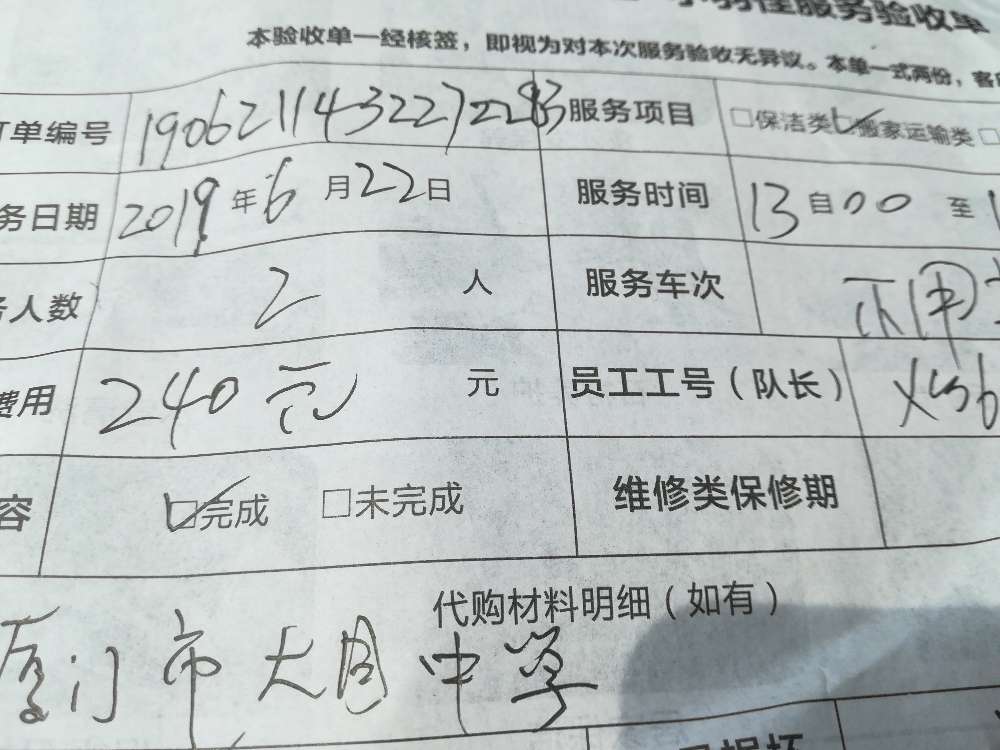 服务验收单
本验收单一经核签，即视为对本次服务验收无异议。本单一式两份，客
单编号 19062114322272283 服务项目 □保洁类 ☑搬家运输类 □
务日期 2019年6月22日 服务时间 13自00至1
人数 2人 服务车次
费用 240元 元 员工工号（队长）
容 ☑完成 □未完成 维修类保修期
代购材料明细（如有）
厦门市大同中学